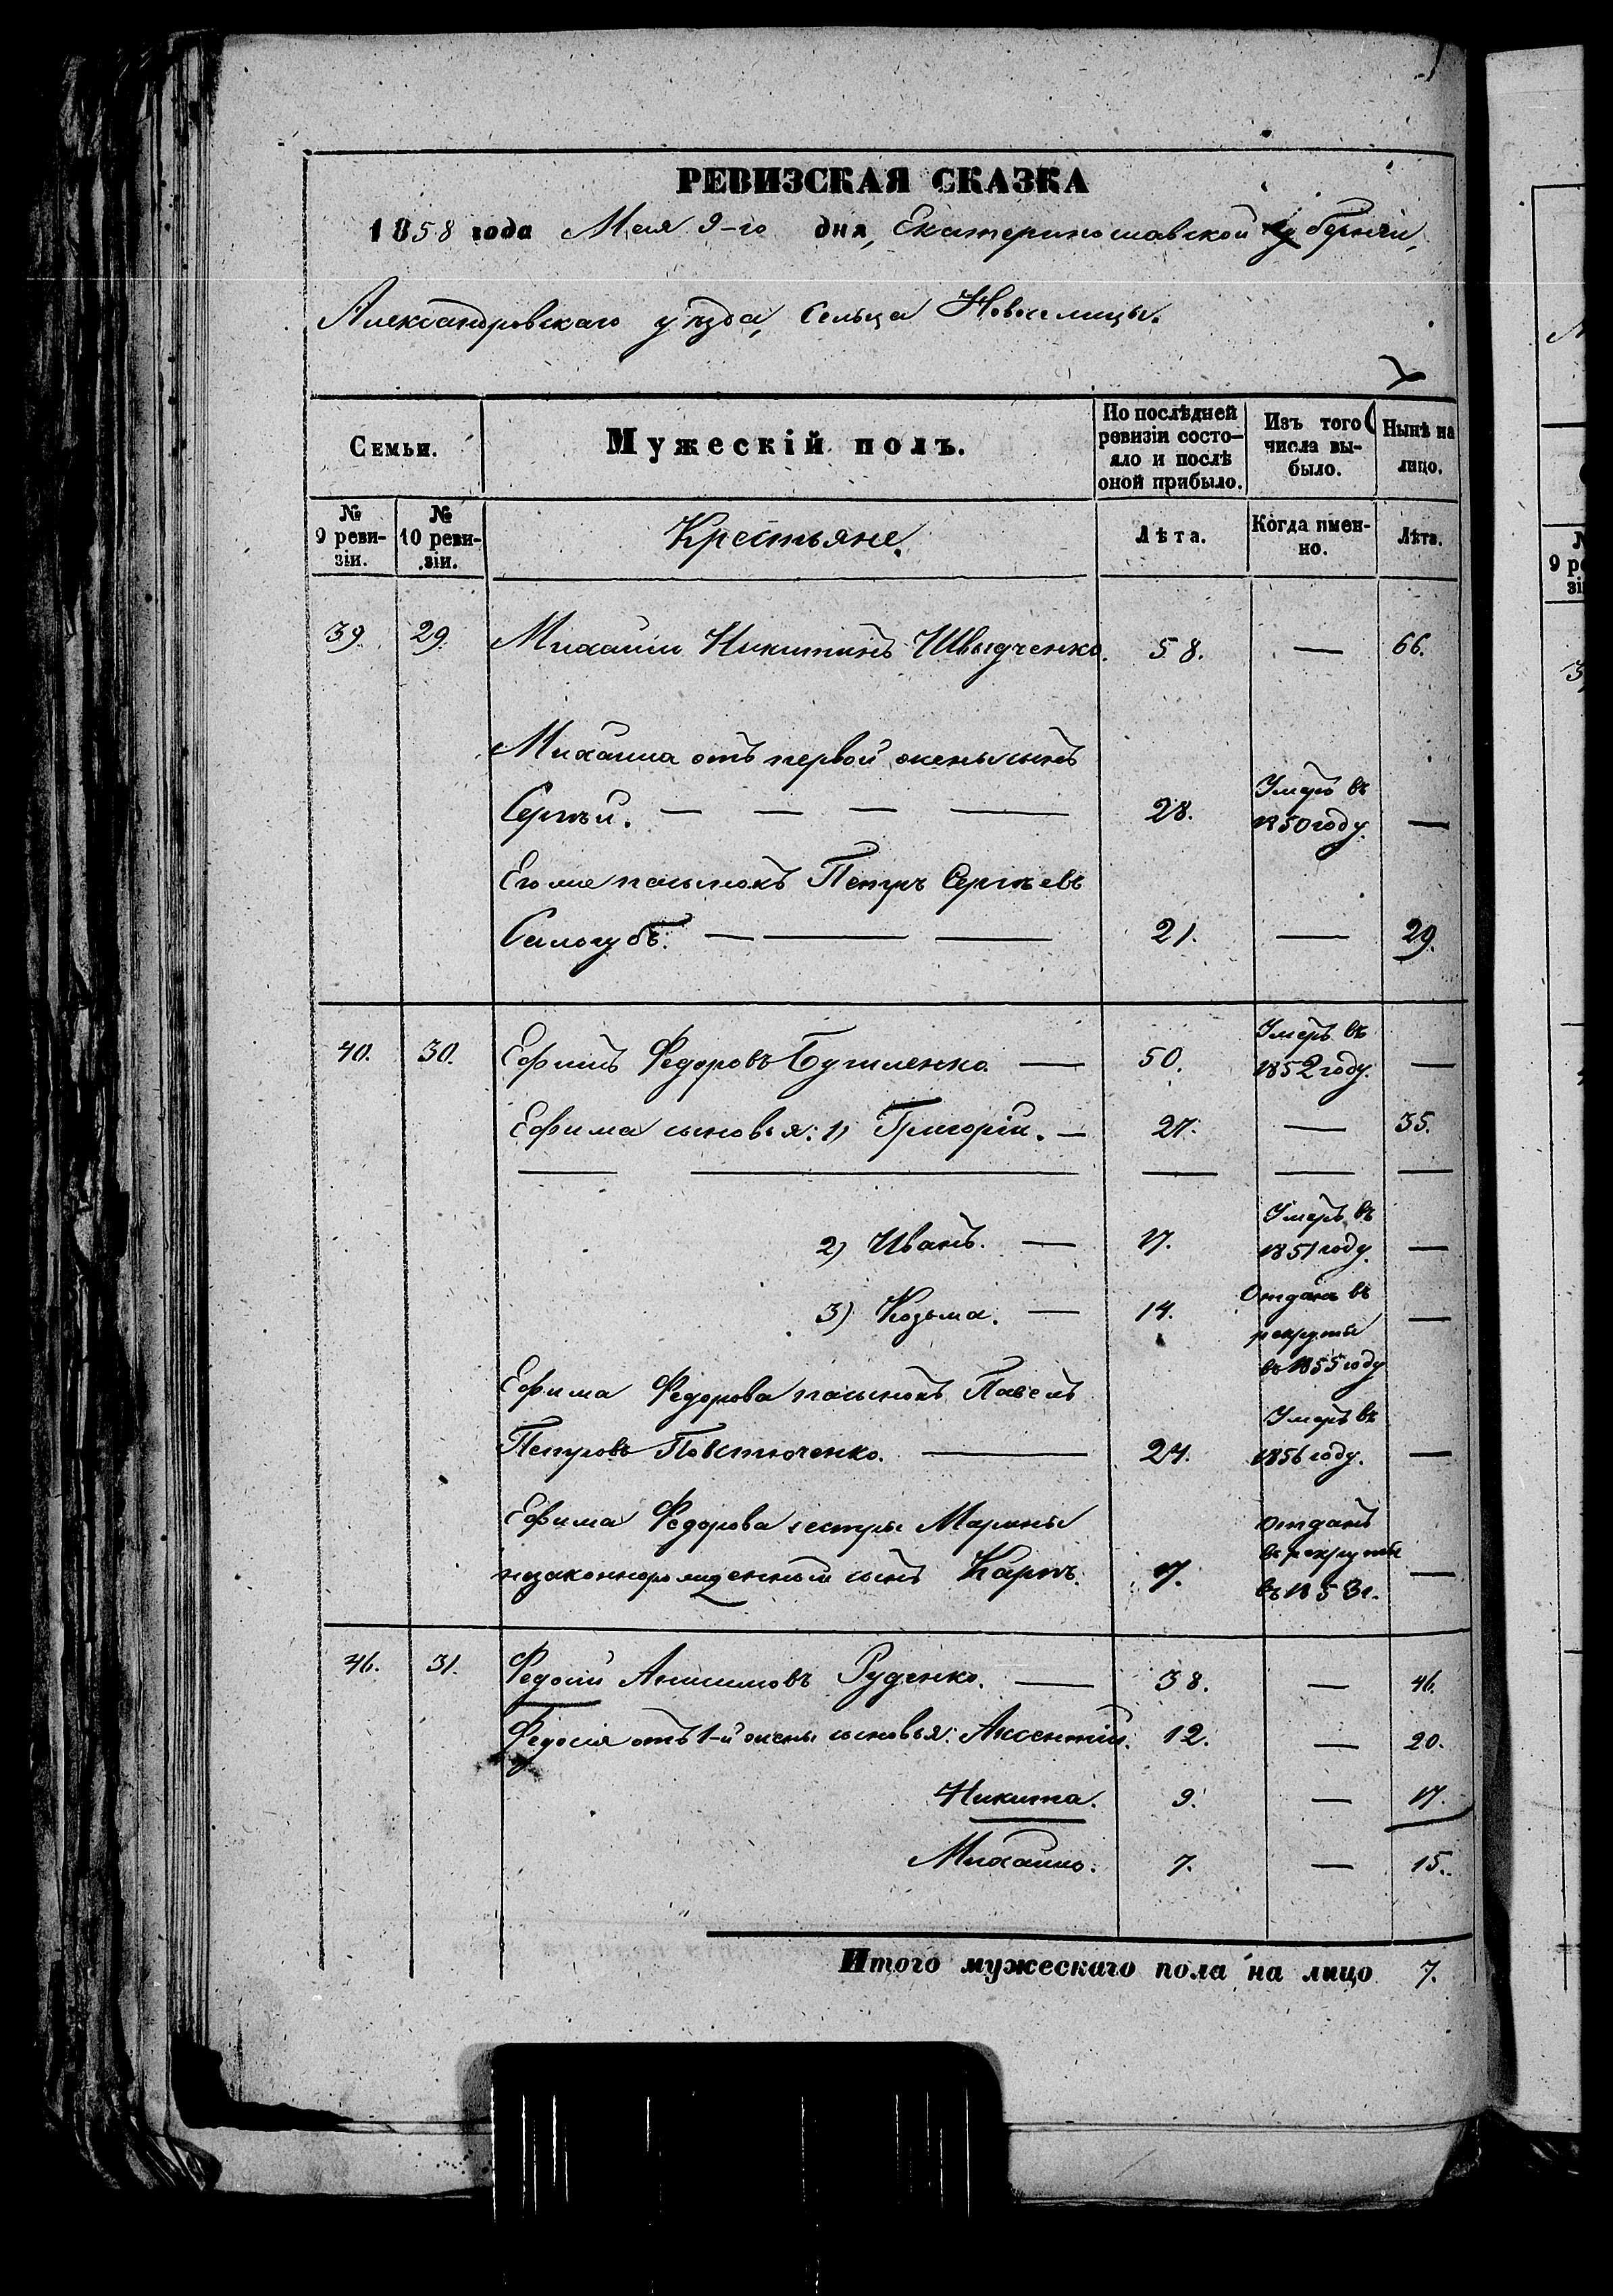 РЕВИЗСКАЯ СКАЗКА
1858 года Мая 9-го дня, Екатеринославской губернии,
Александровскаго уѣзда, Сельца Новоселицы.
Семьи.
Мужескій полъ.
По послѣдней ревизіи состо-
яло и послѣ оной прибыло.
Изъ того числа вы-
было.
Нынѣ на лицо.
№ 9 реви-
зіи.
№ 10 реви-
зіи.
Крестьяне.
Лѣта.
Когда имен-
но.
Лѣта.
39. 29. Михаилъ Никитинъ Швыдченко. 58. — 66.
Михаила отъ первой жены сынъ
Сергѣй. — — — — 28. Умеръ въ 1850 году. —
Его же пасынокъ Петръ Сергѣевъ
Самогубъ. — — — 21. — 29.
40. 30. Ефимъ Федоровъ — 50. Умеръ въ 1852 году. —
Ефима сыновья: 1) Григорій. — 27. — 35.
2) Иванъ. — 17. Умеръ въ 1851 году. —
3) Козьма. — 14. Отданъ въ рекруты въ 1855 году —
Ефима Федорова пасынокъ Павелъ
Петровъ — 24. Умеръ въ 1856 году. —
Ефима Федорова сестры Марины
незаконнорожденный сынъ Карпъ. 17. Отданъ въ рекруты въ 1853 г. —
46. 31. Федосій Анисимовъ Руденко. — 38. — 46.
Федосія отъ 1-й жены сыновья: Аксентій. 12. — 20.
Никита. 9. — 17.
Михайло. 7. — 15.
Итого мужескаго пола на лицо 7.